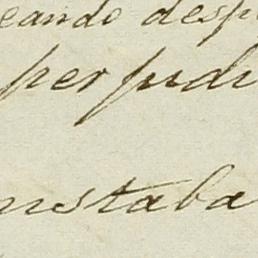 eando desp
perjudi
nstaba